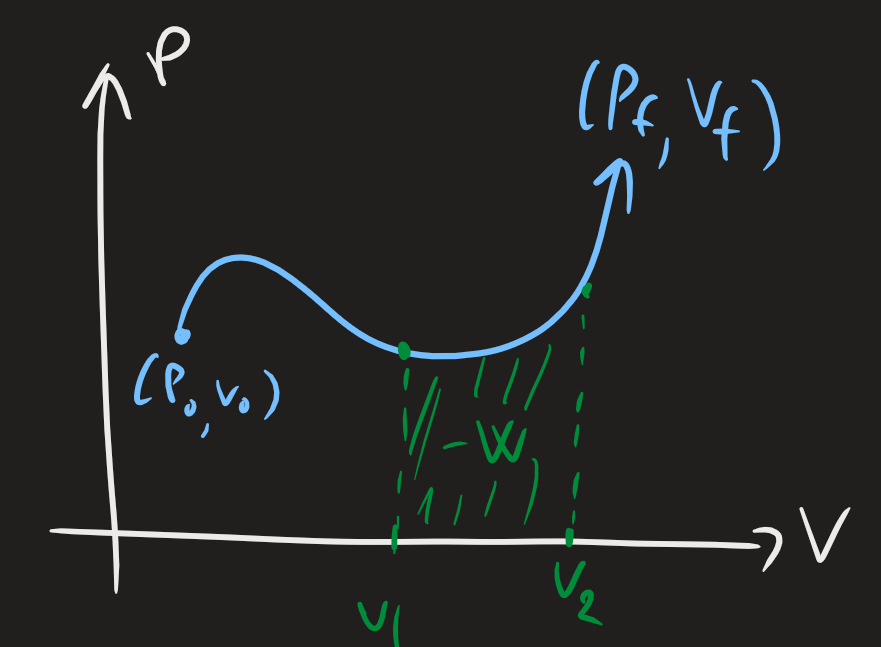 P
(P_f, V_f)
(P_0, V_0)
-W
V
V_1
V_2